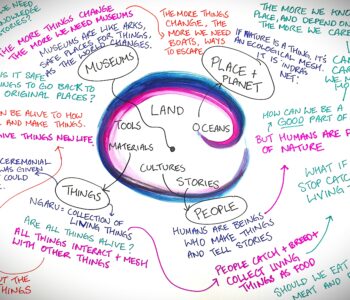 THE MORE THINGS CHANGE
THE MORE WE NEED MUSEUMS
MUSEUMS ARE LIKE ARKS,
SAFE PLACES FOR THINGS,
AS THE WORLD CHANGES.
MUSEUMS
THE MORE THINGS
CHANGE, THE
MORE WE NEED
BOATS, WAYS
TO ESCAPE
THE MORE WE KNOW
PLACE, AND DEPEND ON
THE MORE WE CARE
IF NATURE IS A THING, IT'S
AN ECOLOGICAL MESH.
IT IS INDRA'S
NET.
PLACE +
PLANET
WE NEED
IS IT SAFE
THINGS TO GO BACK TO
ORIGINAL PLACES?
BE ALIVE TO HOW
AND MAKE THINGS.
GIVE THINGS NEW LIFE.
CEREMONIAL
WAS GIVEN
COULD
LAND
OCEANS
TOOLS
MATERIALS
CULTURES
STORIES
HOW CAN WE BE A
GOOD PART OF
BUT HUMANS ARE
OF NATURE
WHAT IF
STOP CATCH
LIVING
THINGS
NGARU = COLLECTION OF
LIVING THINGS
ARE ALL THINGS ALIVE?
ALL THINGS INTERACT + MESH
WITH OTHER THINGS
PEOPLE
HUMANS ARE BEINGS
WHO MAKE THINGS
AND TELL STORIES
PEOPLE CATCH + BREED +
COLLECT LIVING
THINGS AS FOOD
SHOULD WE EAT
MEAT AND
THE
THINGS